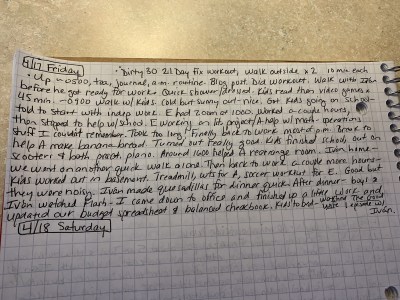 4/17 Friday • Dirty 30 21 Day fix workout, walk outside x2 10 min each
• Up ~0500, tea, journal, a.m. routine. Blog post. Did workout. Walk with Iván
before he got ready for work. Quick shower/dressed. Kids read then video games x
45 min. ~0900 walk w/ kids. Cold but sunny out-nice. Got kids going on school-
told to start with indep work. E had zoom at 1000. Worked a couple hours,
then stopped to help w/ school. E working on its project/A help w/ math- operations
stuff I couldn't remember. Took too long! Finally back to work most of pm. Break to
help A make banana bread. Turned out really good. Kids finished school, out on
scooters & both pract. piano. Around 1600 helped A rearrange room. Iván home-
we went on another quick walk alone. Then back to work a couple more hours-
Kids worked out in basement. Treadmill, wts for A, soccer workout for E. Good but
they were noisy. Iván made quesadillas for dinner quick. After dinner- boys &
Iván watched Flash- I came down to office and finished up a little work and
updated our budget spreadsheet & balanced checkbook. Kids to bed- watched The Crown
1 episode w/
Iván.
4/18 Saturday